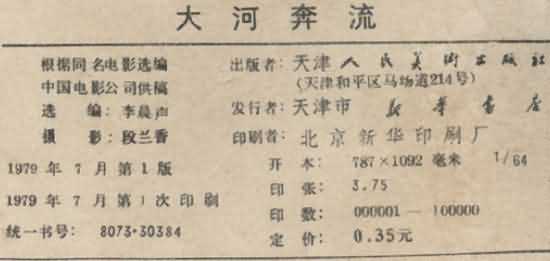 大河奔流
根据同名电影选编
中国电影公司供稿
选 编：李晨声
摄 影：段兰香
1979 年 7 月 第 1 版
1979 年 7 月 第 1 次 印 刷
统一书号： 8073·30384
出版者：天津人民美术出版社
(天津和平区马场道214号)
发行者：天津市 新华书店
印刷者：北京新华印刷厂
开 本： 787×1092 毫米 1/64
印 张： 3.75
印 数： 000001—100000
定 价： 0.35元